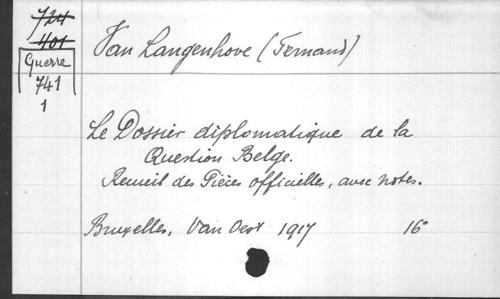 724
401
Guerre
741
1
Van Langenhove (Fernand)
Le Dossier diplomatique de la
Question Belge.
Recueil des Pièces officielles, avec notes.
Bruxelles, Van Oest 1917 16°